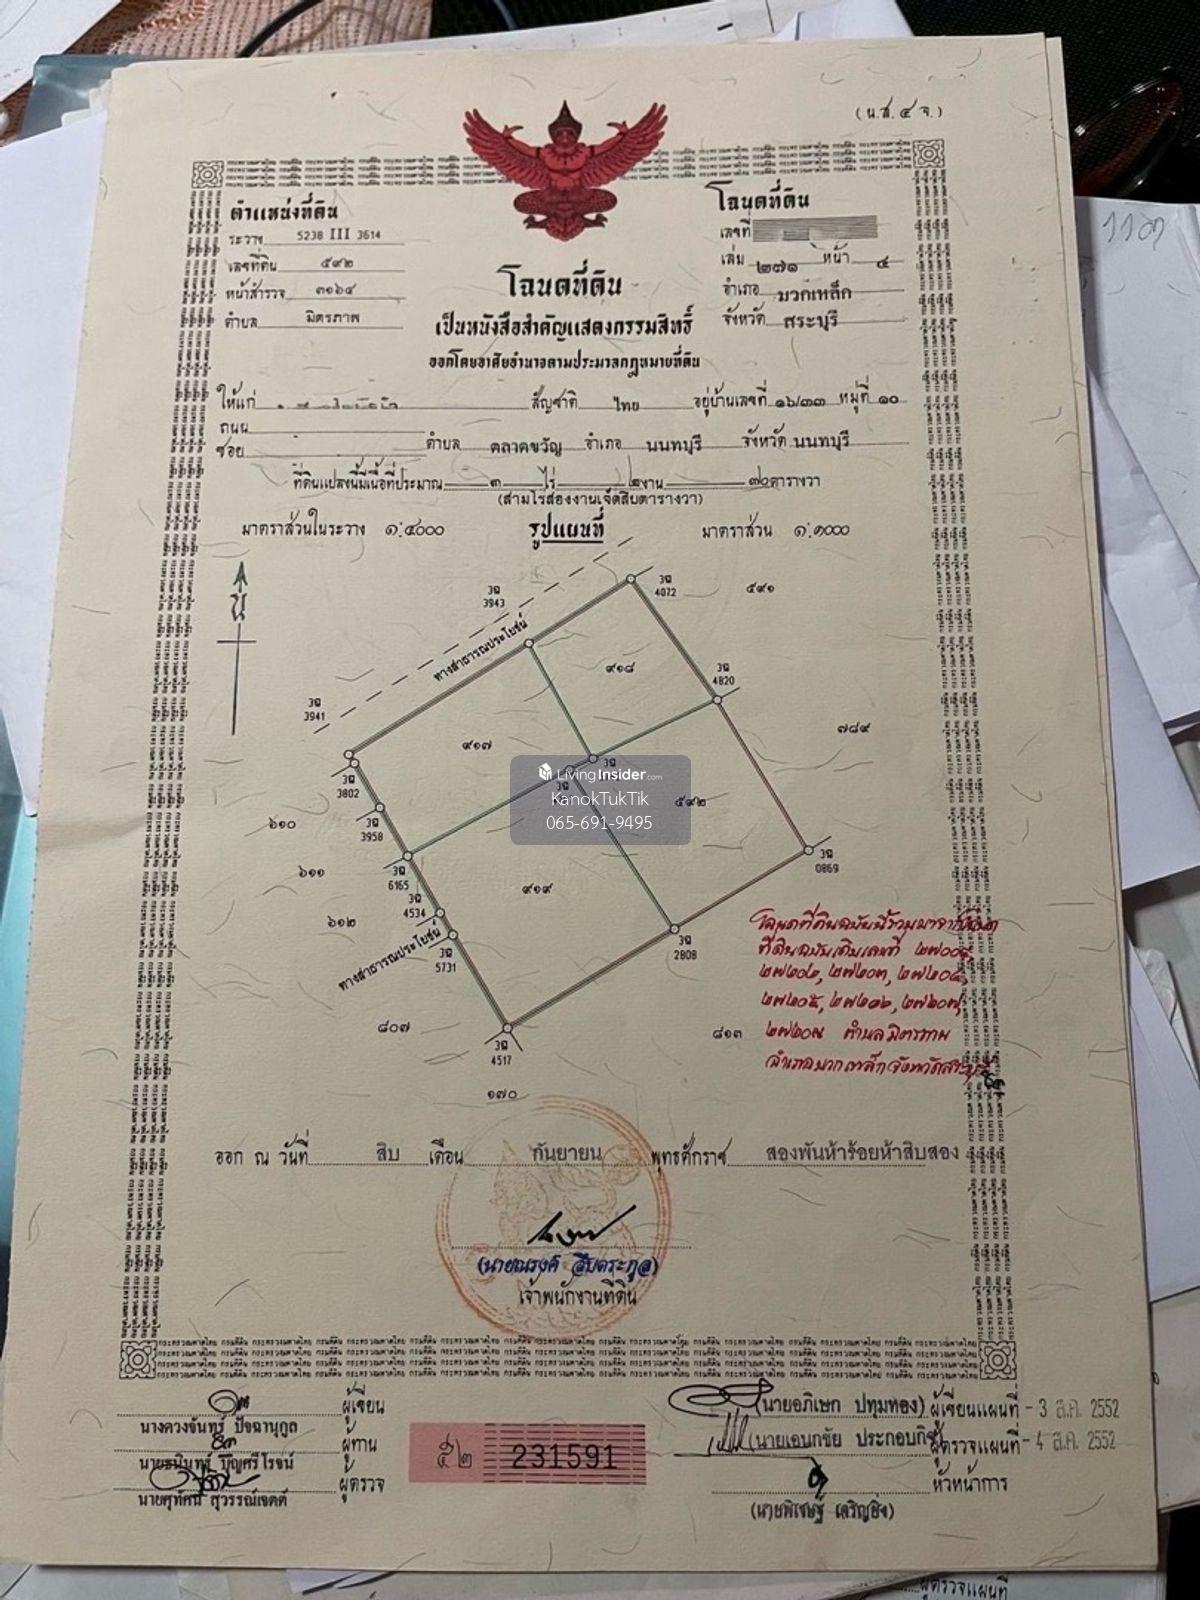 (น.ส. ๔ จ.)
ตำแหน่งที่ดิน
ระวาง 5238 III 3614
เลขที่ดิน ๕๙๒
หน้าสำรวจ ๓๑๖๔
ตำบล มิตรภาพ
โฉนดที่ดิน
เลขที่
เล่ม ๒๗๑ หน้า ๔
อำเภอ มวกเหล็ก
จังหวัด สระบุรี
โฉนดที่ดิน
เป็นหนังสือสำคัญแสดงกรรมสิทธิ์
ออกโดยอาศัยอำนาจตามประมวลกฎหมายที่ดิน
ให้แก่ สัญชาติ ไทย อยู่บ้านเลขที่ ๑๖/๓๓ หมู่ที่ ๑๐
ถนน
ซอย ตำบล ตลาดขวัญ อำเภอ นนทบุรี จังหวัด นนทบุรี
ที่ดินแปลงนี้มีเนื้อที่ประมาณ ๓ ไร่ ๒ งาน ๗๐ ตารางวา
(สามไร่สองงานเจ็ดสิบตารางวา)
มาตราส่วนในระวาง ๑:๔๐๐๐ รูปแผนที่ มาตราส่วน ๑:๑๐๐๐
น
3ฉ 3943
3ฉ 4072
๕๙๑
ทางสาธารณประโยชน์
๙๑๘
3ฉ 4820
3ฉ 3941
๙๑๗
๗๘๙
3ฉ 3802
3ฉ
3ฉ
LivingInsider.com
KanokTukTik
065-691-9495
๕๙๒
๖๑๐
3ฉ 3958
3ฉ 0869
๖๑๑
3ฉ 6165
๙๑๙
3ฉ 4534
๖๑๒
ทางสาธารณประโยชน์
3ฉ 5731
3ฉ 2808
๘๐๗
3ฉ 4517
๘๑๓
๑๗๐
โฉนดที่ดินฉบับนี้รวมมาจากโฉนด
ที่ดินฉบับเดิมเลขที่
ตำบลมิตรภาพ
อำเภอมวกเหล็ก จังหวัดสระบุรี
ออก ณ วันที่ สิบ เดือน กันยายน พุทธศักราช สองพันห้าร้อยห้าสิบสอง
(นายณรงค์ สืบตระกูล)
เจ้าพนักงานที่ดิน
ผู้เขียน
นางดวงจันทร์ ปัจฉานุกูล
ผู้ทาน
นายธนินทร์ บุญศรีโรจน์
ผู้ตรวจ
นายศุทัศน์ สุวรรณ์เจตต์
๕๒ 231591
(นายอภิเษก ปทุมทอง) ผู้เขียนแผนที่ - 3 ส.ค. 2552
(นายเอนกชัย ประกอบกิจ) ผู้ตรวจแผนที่ - 4 ส.ค. 2552
หัวหน้าการ
(นายพิเชษฐ์ เจริญยิ่ง)
ผู้ตรวจแผนที่